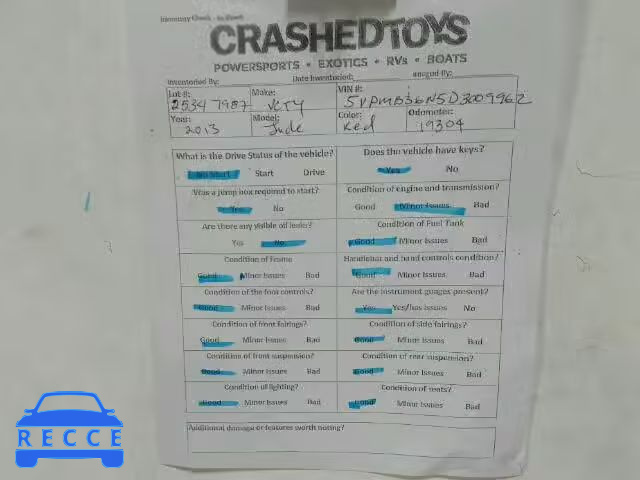 Inventory Check - In Sheet
CRASHEDTOYS
POWERSPORTS • EXOTICS • RVs • BOATS
Inventoried By: Date Inventoried: Managed By:
Lot #: Make: VIN #:
25347987 VCTY 5VPMB36N5D3009962
Year: Model: Color: Odometer:
2013 Jude Red 19304
What is the Drive Status of the vehicle? Does the vehicle have keys?
No Start Start Drive Yes No
Was a jump box required to start? Condition of engine and transmission?
Yes No Good Minor Issues Bad
Are there any visible oil leaks? Condition of Fuel Tank
Yes No Good Minor Issues Bad
Condition of Frame Handlebar and hand controls condition?
Good Minor Issues Bad Good Minor Issues Bad
Condition of the foot controls? Are the instrument guages present?
Good Minor Issues Bad Yes Yes/has Issues No
Condition of front fairings? Condition of side fairings?
Good Minor Issues Bad Good Minor Issues Bad
Condition of front suspension? Condition of rear suspension?
Good Minor Issues Bad Good Minor Issues Bad
Condition of lighting? Condition of seats?
Good Minor Issues Bad Good Minor Issues Bad
Additional damage or features worth noting?
RECCE